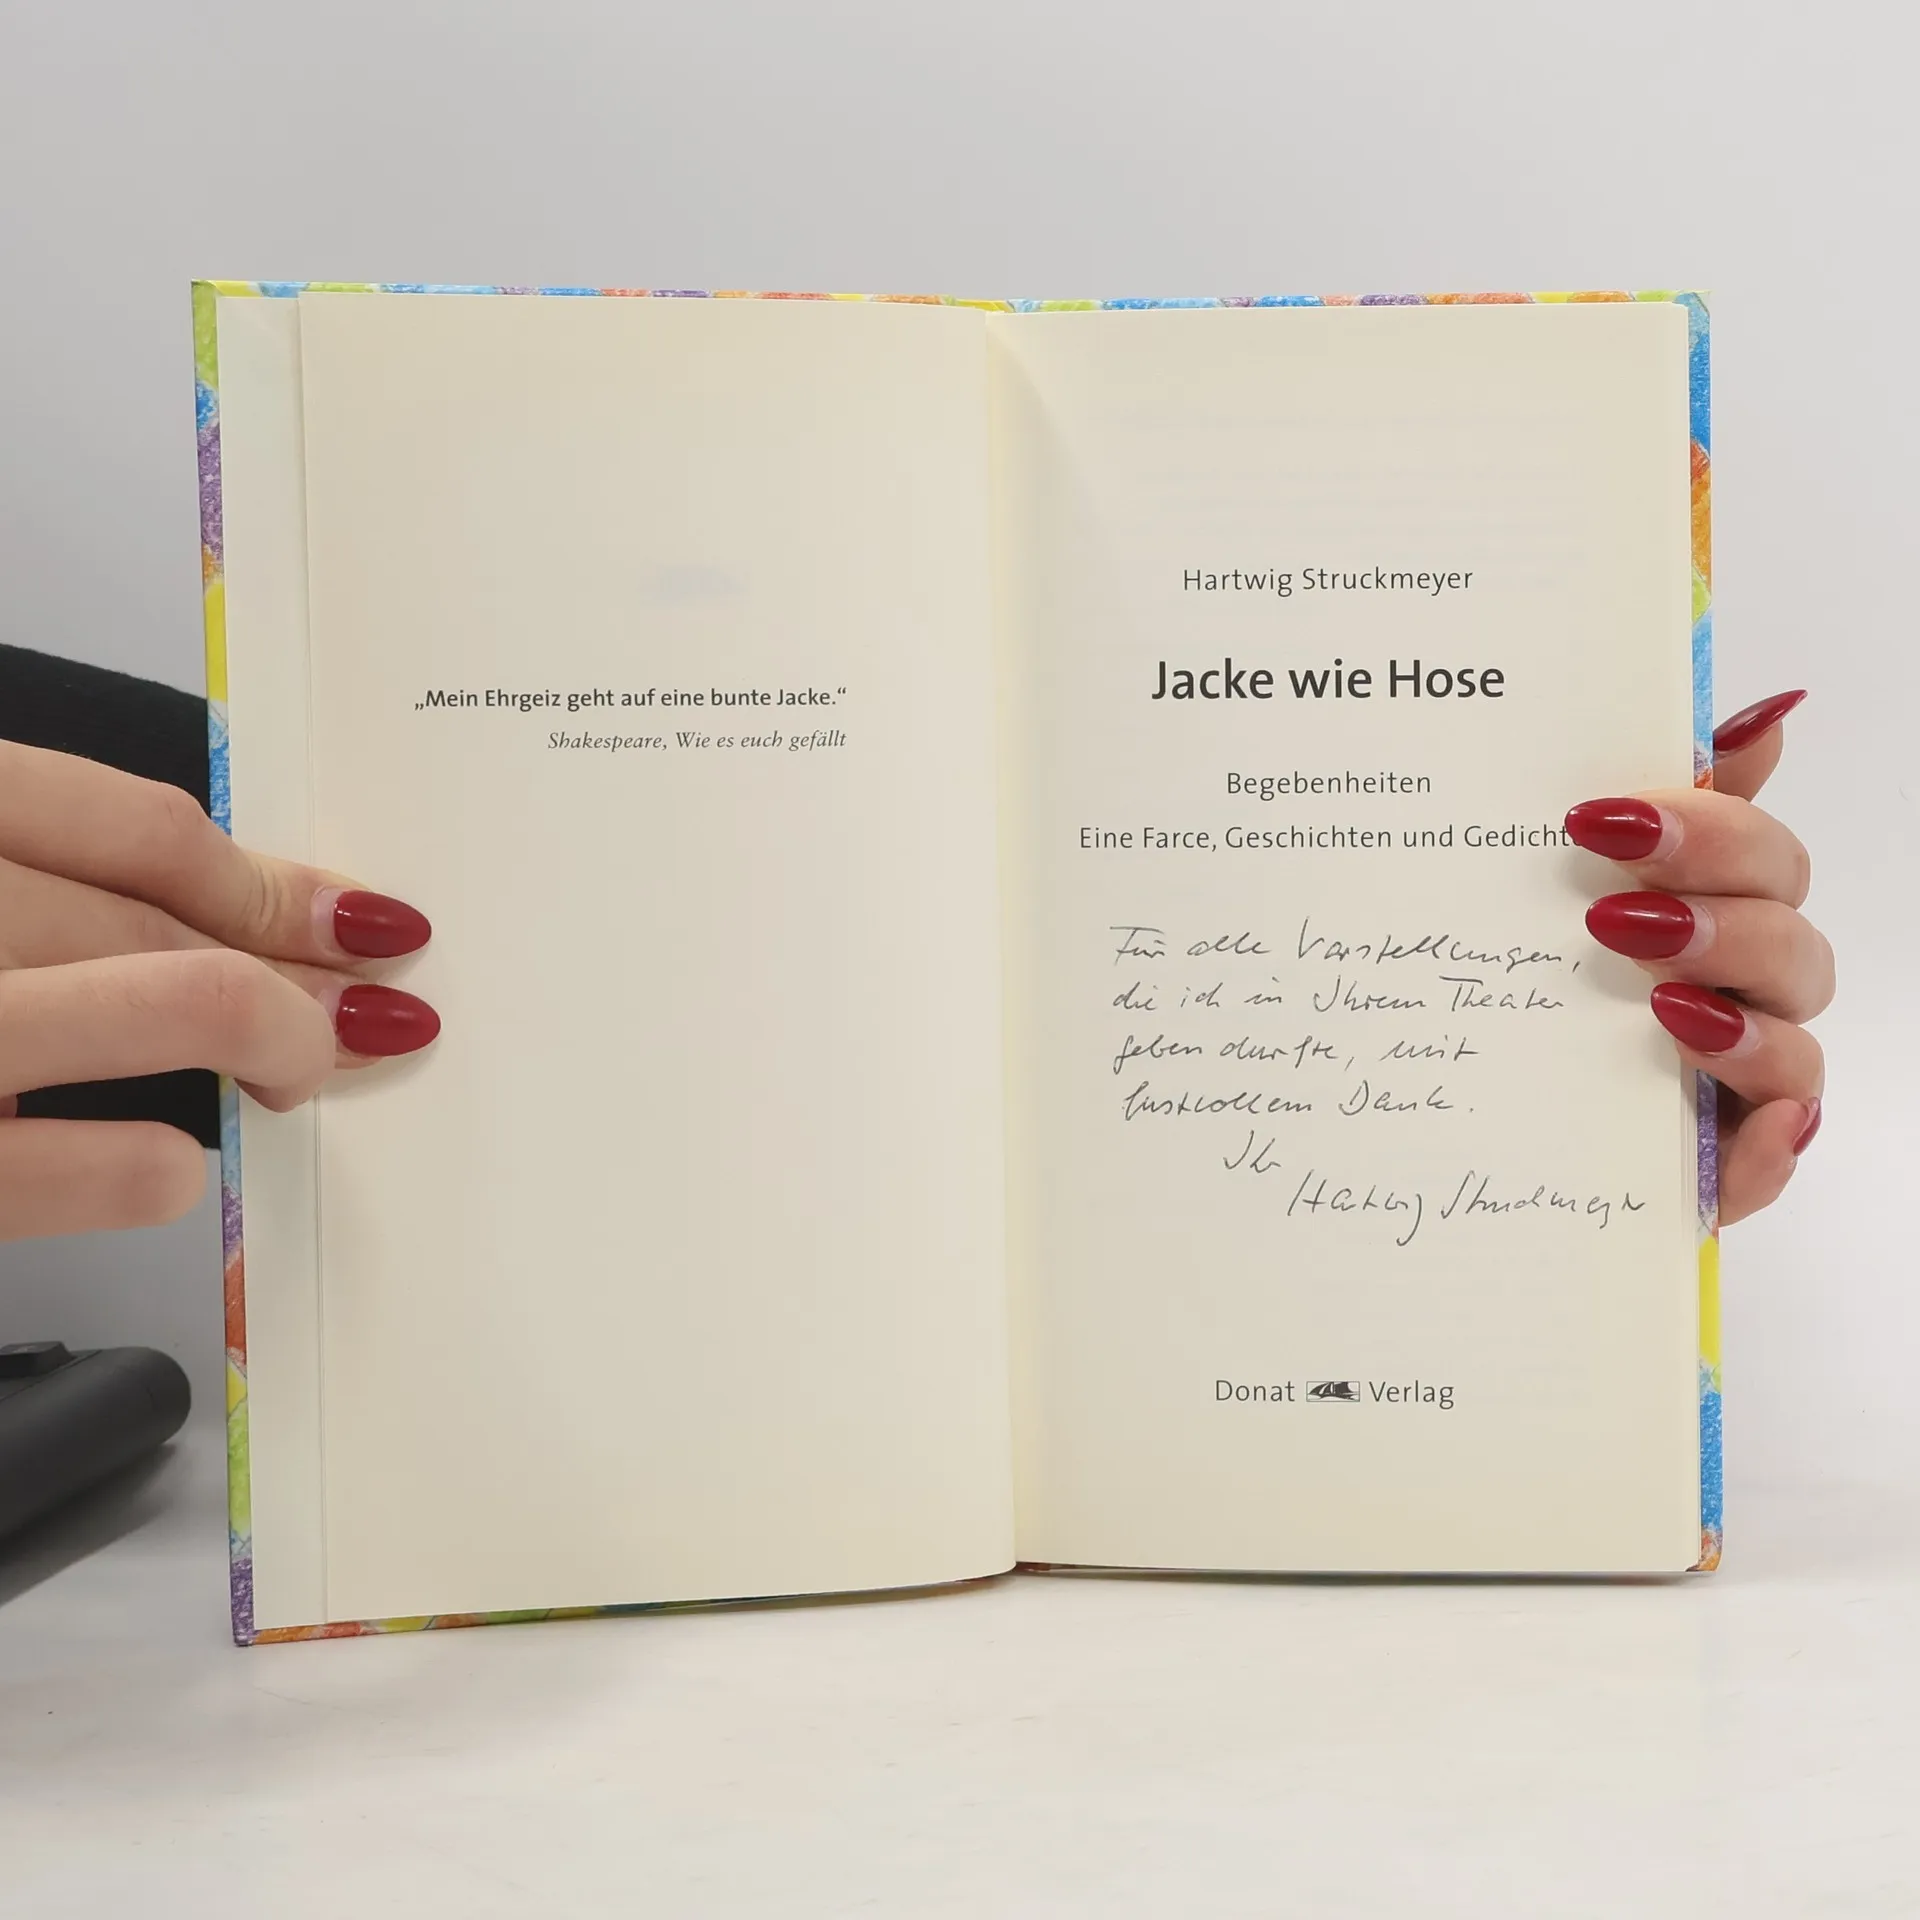 „Mein Ehrgeiz geht auf eine bunte Jacke.“
Shakespeare, Wie es euch gefällt
Hartwig Struckmeyer
Jacke wie Hose
Begebenheiten
Eine Farce, Geschichten und Gedichte
Für alle Vorstellungen,
die ich in Ihrem Theater
geben durfte, mit
lustvollem Dank.
Ihr
Hartwig Struckmeyer
Donat Verlag